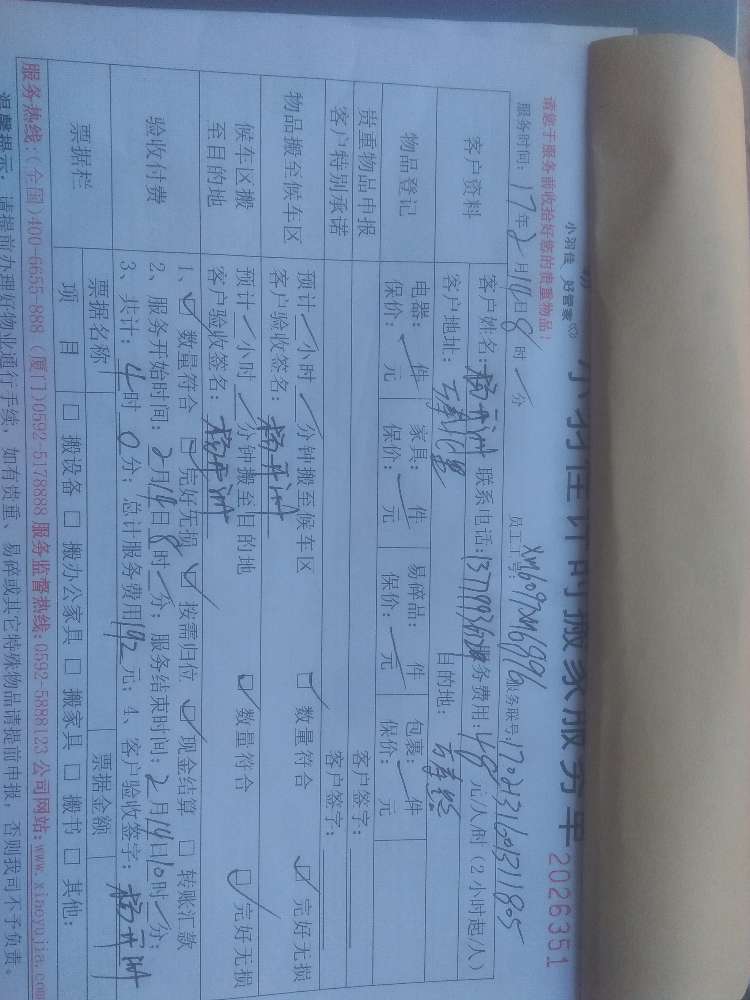 小羽佳 好管家
小羽佳计时搬家服务单
2026351
请您于服务前收拾好您的贵重物品！
服务时间：17年2月14日8时 分 员工工号： 服务联号：
客户资料 客户姓名： 联系电话： 服务费用：48元/人/时（2小时起/人）
客户地址： 目的地：
物品登记 电器： 件 家具： 件 易碎品： 件 包裹： 件
保价： 元 保价： 元 保价： 元 保价： 元
贵重物品申报 客户签字：
客户特别承诺 客户签字：
物品搬至候车区 预计 小时 分钟搬至候车区 □ 数量符合 □ 完好无损
客户验收签名：
候车区搬至目的地 预计 小时 分钟搬至目的地 □ 数量符合 □ 完好无损
客户验收签名：
验收付费 1、□ 数量符合 □ 完好无损 □ 按需归位 □ 现金结算 □ 转账汇款
2、服务开始时间：2月14日8时 分；服务结束时间：2月14日10时 分；
3、共计：4时0分；总计服务费用192元；4、客户验收签字：
票据栏 票据名称 票据金额
项 目 □ 搬设备 □ 搬办公家具 □ 搬家具 □ 搬书 □ 其他：
服务热线：(全国)400-6655-888 (厦门)0592-5178888 服务监督热线：0592-5888123 公司网站：www.xiaoyujia.com
温馨提示：请提前办理好物业通行手续，如有贵重、易碎或其它特殊物品请提前申报，否则我司不予负责。